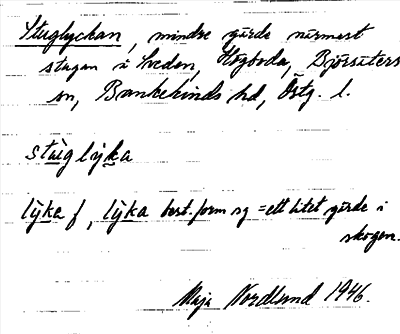 Stuglyckan, mindre gärde närmast
stugan i Sveden, Högboda, Björsäters
sn, Bankekinds hd, Östg. l.
stùglỳka
lỳka f, lỳka best. form sg = ett litet gärde i
skogen.
Maja Nordlund 1946.